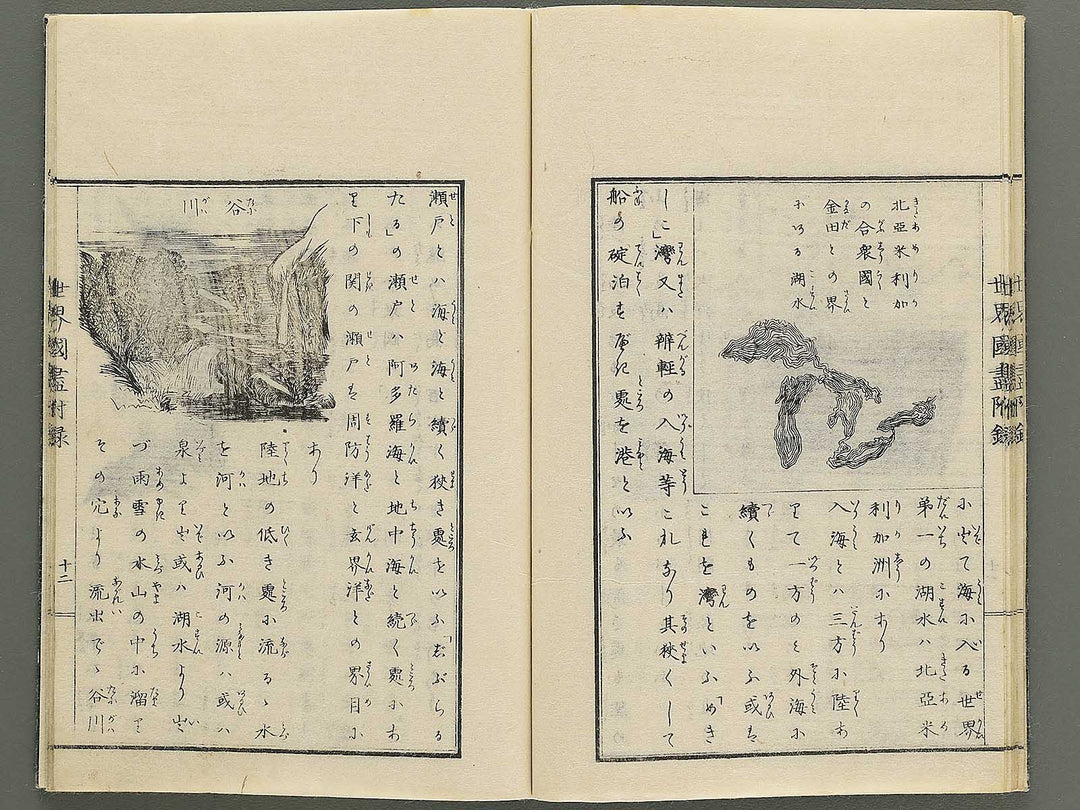 北亞米利加
の合衆國と
金田との界
にある湖水
小して海に入る世界
第一の湖水ハ北亞米
利加洲にあり
入海とハ三方に陸あ
りて一方のミ外海に
續くものを以ふ或は
これを灣といふ「めき
しこ」灣又ハ辨軽の入海等これなり其狹くして
船の碇泊すべき處を港と以ふ
世界國盡附録
瀬戸とハ海と海と續く狹き處を以ふ「志ぶらる
たる」の瀬戸ハ阿多羅海と地中海と続く處にあ
り下の関の瀬戸は周防洋と玄界洋との界目に
あり
谷川
陸地の低き處に流るゝ水
を河と以ふ河の源ハ或ハ
泉より出或ハ湖水より出
づ雨雪の水山の中に溜り
その穴より流出でゝ谷川
世界國盡附録
十二